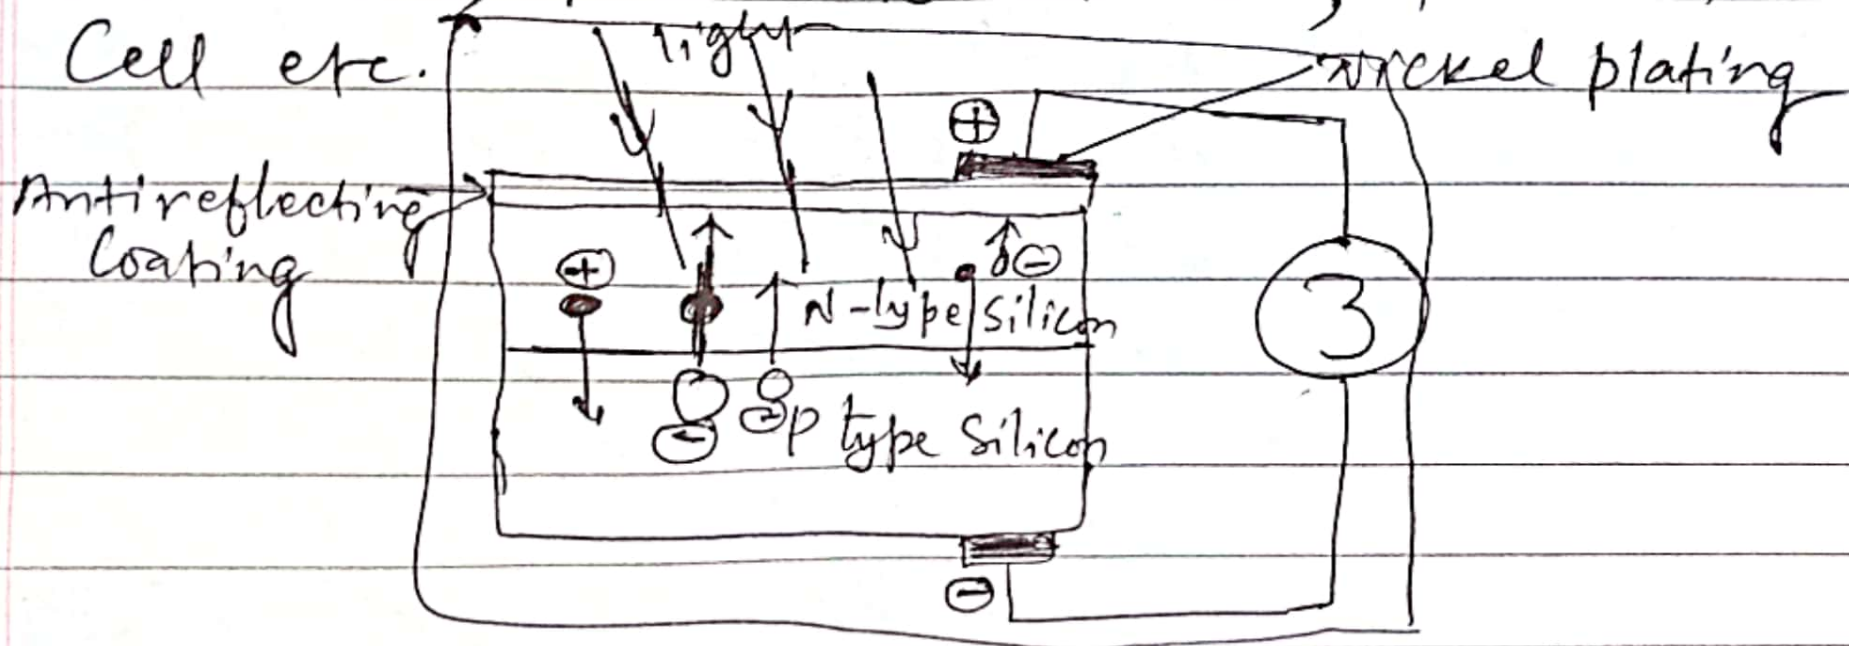 Cell etc.
light
Nickel plating
⊕
Antireflecting
Coating
⊕
⊖
N-type Silicon
3
⊖ ⊖ p type Silicon
⊖